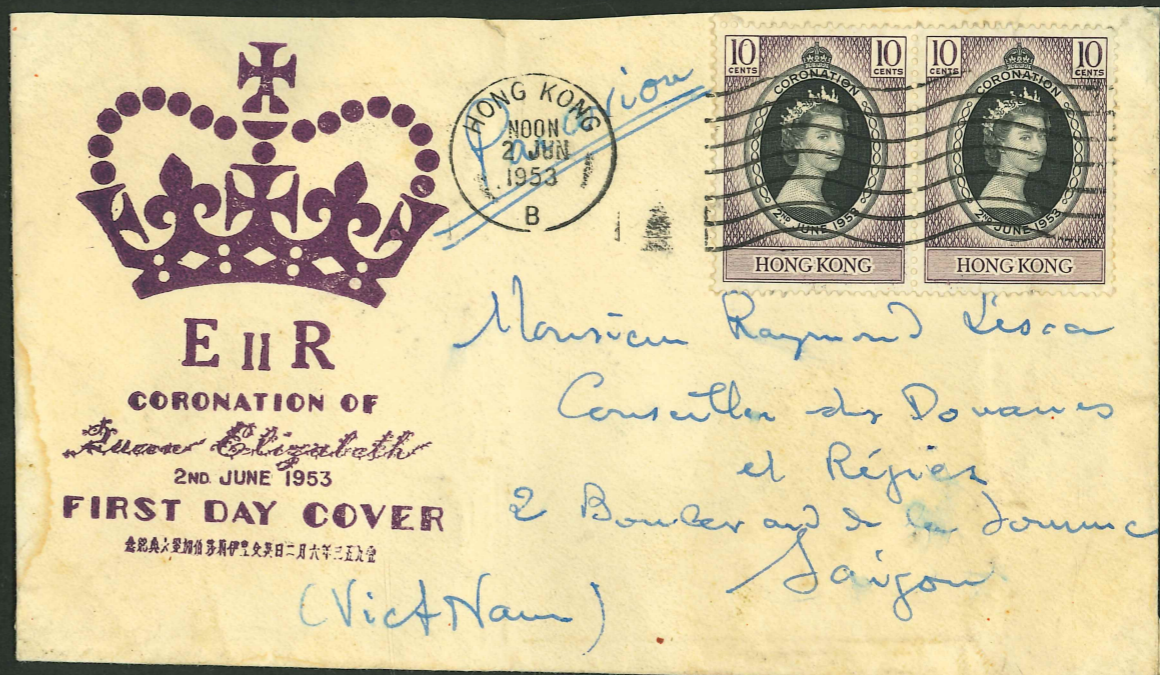 E II R
CORONATION OF
Queen Elizabeth
2ND. JUNE 1953
FIRST DAY COVER
Par avion
HONG KONG
NOON
2 JUN
1953
B
10 CENTS 10 CENTS
CORONATION
2ND JUNE 1953
HONG KONG
10 CENTS 10 CENTS
CORONATION
2ND JUNE 1953
HONG KONG
Monsieur Raymond
Conseiller des Douanes
et Régies
2 Boulevard de la Somme
Saigon
(Viet Nam)